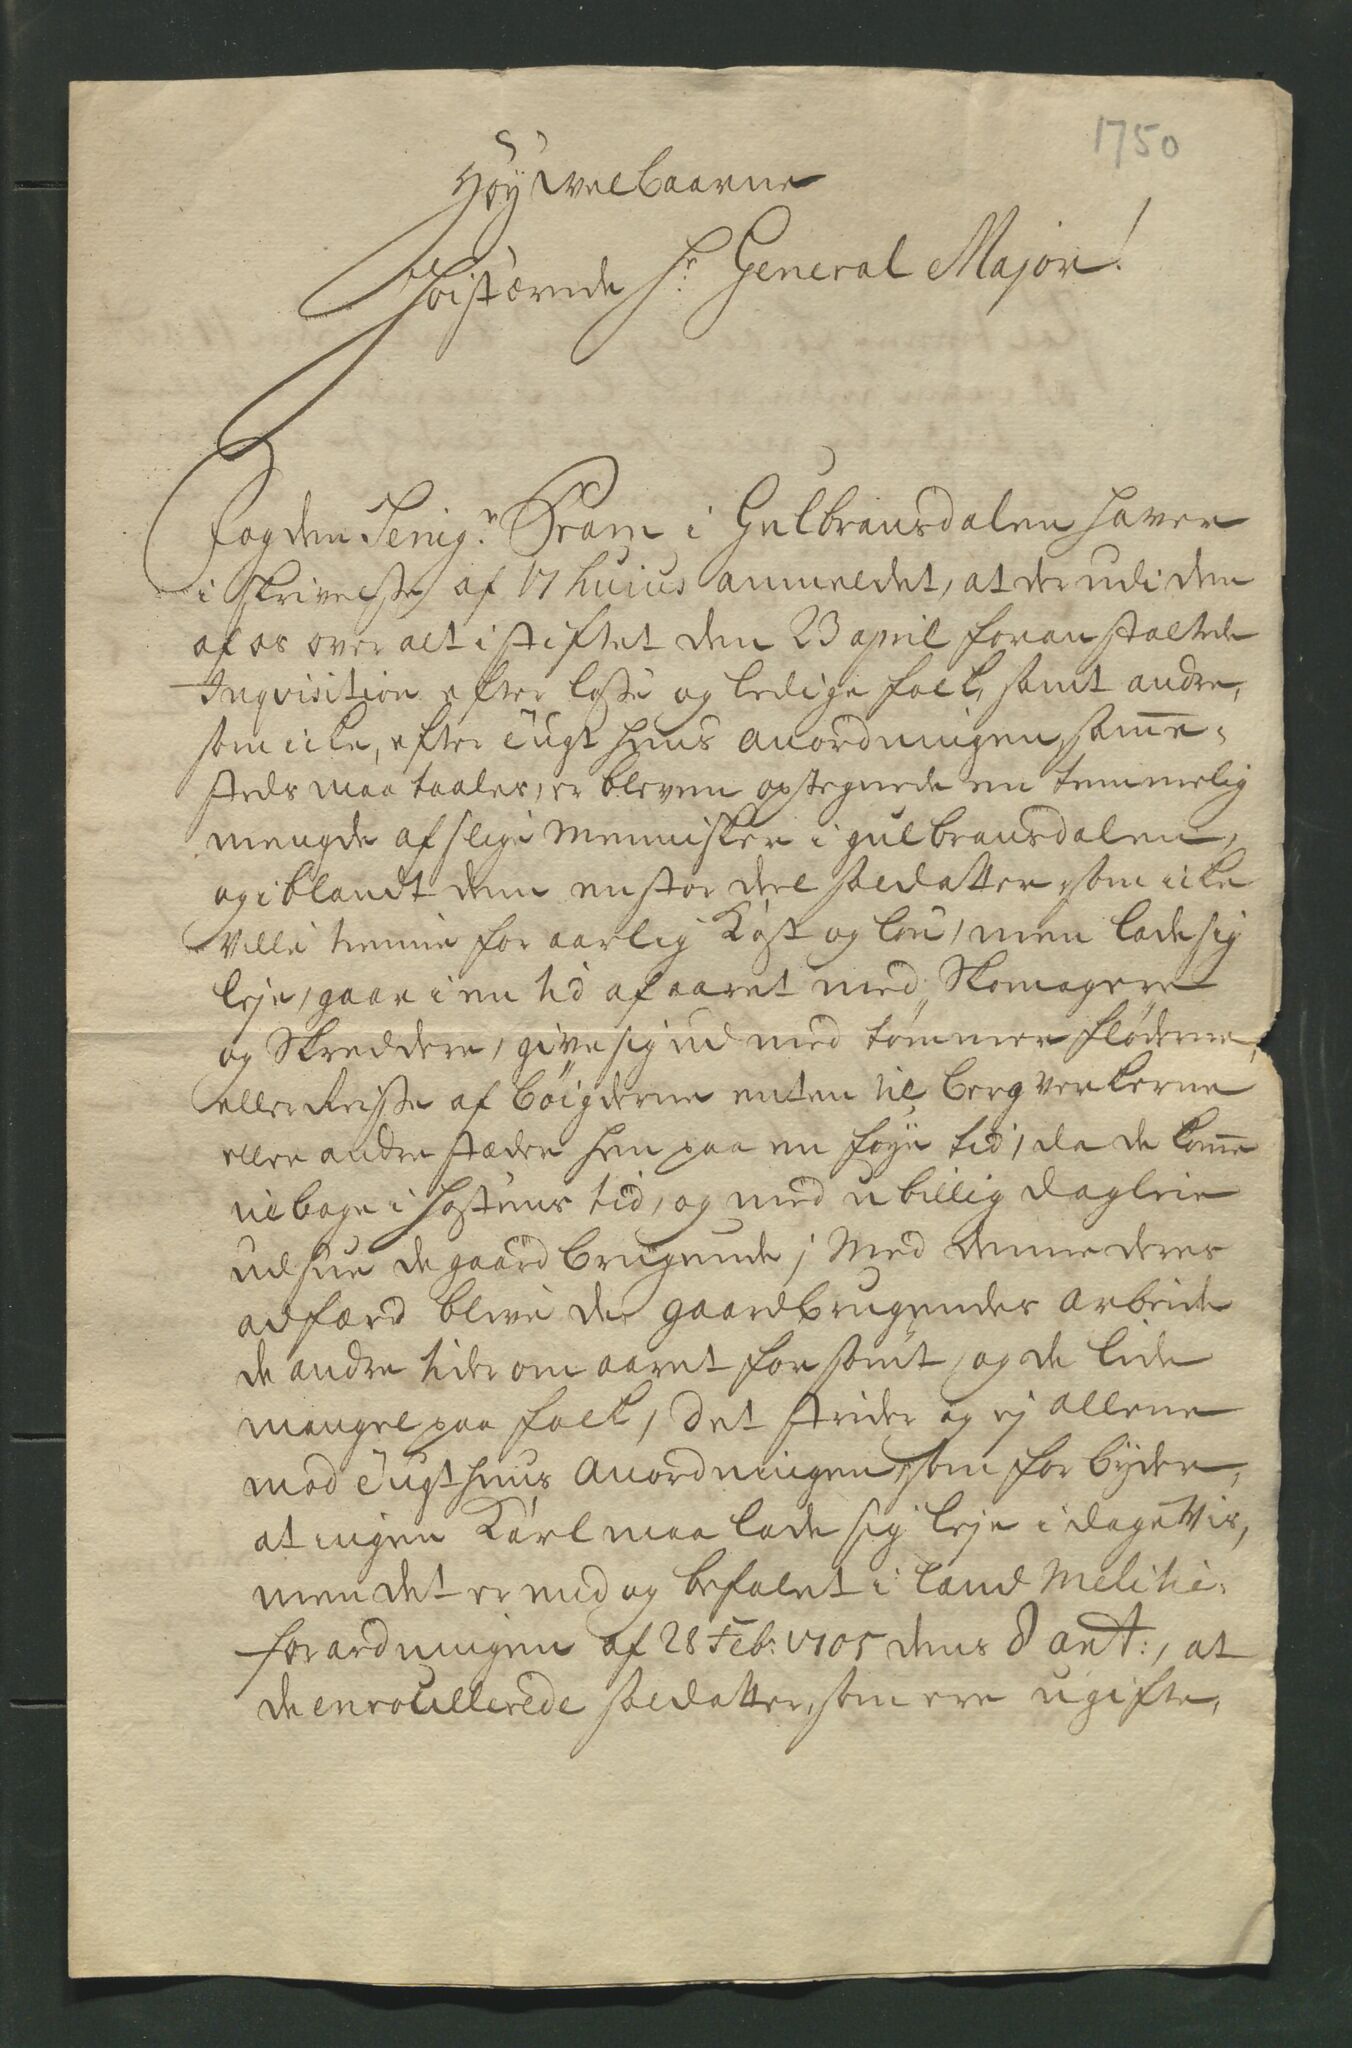 1750
Høyvelbaarne
Høistærede Hr. General Major!
Fogden Seigr. Pram i Gulbransdalen haver
i skrivelsse af 17 huius anmeldet, at der udi den
af os over alt i stiftet den 23 april foranstaltede
Inqvisition efter løsse og ledige folk, samt andre,
som icke, efter tugthuus anordningen, samme-
steds maa taales, er bleven optegnede en temmelig
mengde af slige Mennisker i gulbransdalen,
og iblandt dem en stor deel soldatter, som icke
ville tienne for aarlig Kost og løn, men lade sig
leje, gaar i en tid af aaret med Skomagere
og Skreddere, give sig ud med tømmer fløderne,
eller Reisse af bøigderne enten til bergverkerne
eller andre stæder hen paa en føye tid, da de komme
tilbage i høstens tid, og med ubillig dagleie
udsue de gaardbrugende; Med denne deres
adfærd blive de gaardbrugendes arbeide
de andre tider om aaret forsømt, og de lide
mangel paa folk, det strider og ej allene
mod tugthuus anordningen, som forbyder,
at ingen Karl maa lade sig leje i dageviis,
men det er end og befalet i land Militie-
forordningen af 28 Feb: 1705 dens 8 art:, at
de enroullerede soldatter, som ere ugifte,